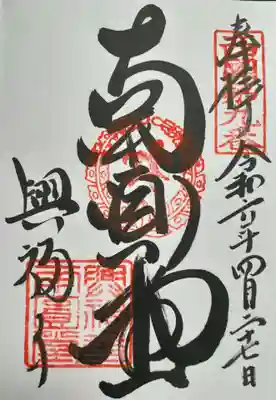 奉拝 令和六年四月二十七日
南圓堂
興福寺